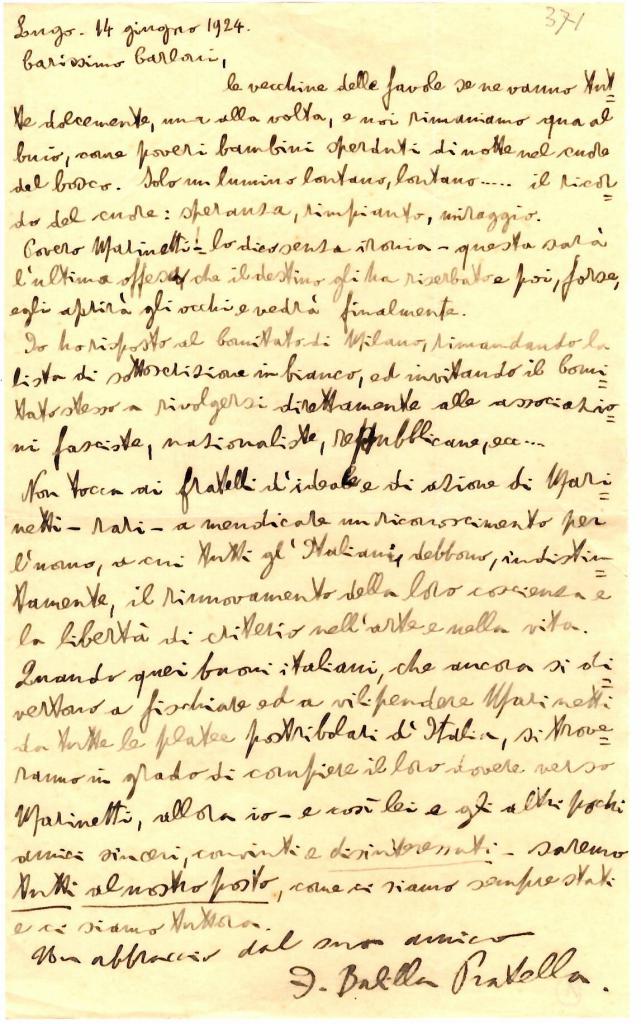 371
Lugo - 14 giugno 1924.
Carissimo Carloni,
le vecchine delle favole se ne vanno tut=
te dolcemente, una alla volta, e noi rimaniamo qua al
buio, come poveri bambini sperduti di notte nel cuore
del bosco. Solo un lumino lontano, lontano..... il ricor=
do del cuore: speranza, rimpianto, miraggio.
Povero Marinetti! - lo dico senza ironia - questa sarà
l'ultima offesa che il destino gli ha riserbato e poi, forse,
egli aprirà gli occhi e vedrà finalmente.
Io ho risposto al Comitato di Milano, rimandando la
lista di sottoscrizione in bianco, ed invitando il Comi=
tato stesso a rivolgersi direttamente alle associazio=
ni fasciste, nazionaliste, repubblicane, ecc...
Non tocca ai fratelli d'ideale e di azione di Mari=
netti - rari - a mendicare un riconoscimento per
l'uomo, a cui tutti gl'Italiani, debbono, indistin=
tamente, il rinnovamento della loro coscienza e
la libertà di criterio nell'arte e nella vita.
Quando quei buoni italiani, che ancora si di=
vertono a fischiare ed a vilipendere Marinetti
da tutte le platee postribolari d'Italia, si trove=
ranno in grado di compiere il loro dovere verso
Marinetti, allora io - e così lei e gli altri pochi
amici sinceri, convinti e disinteressati - saremo
tutti al nostro posto, come ci siamo sempre stati
e ci siamo tuttora.
Un abbraccio dal suo amico
F. Balilla Pratella.